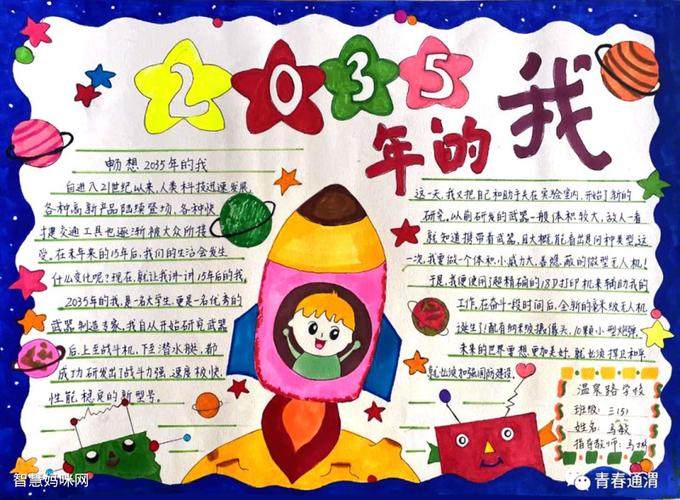 2035
年的我
畅想2035年的我
自进入21世纪以来,人类科技迅速发展,
各种高新产品陆续登场,各种快
捷交通工具也逐渐被大众所接
受。在未来的15年后,我们的生活会发生
什么变化呢?现在,就让我讲讲15年后的我。
2035年的我,是一名大学生,更是一名优秀的
武器制造专家,我自从开始研究武器
后,上至战斗机,下至潜水艇,都
成功研发出了战斗力强、速度极快、
性能稳良的新型号。
这一天,我又把自己和助手关在实验室内,开始了新的
研究,以前研发的武器一般体积较大,敌人一看
就知道携带有武器,且大概能看出是何种类型。这
一次,我要做一个体积小威力大,善隐蔽的微型无人机!
于是,我便使用了超精确的18D打印机来辅助我的
工作,在奋斗一段时间后,全新的毫米级无人机
诞生了!配有纳米级摄像头,10颗小型炮弹,
未来的世界要想更加美好,就必须捍卫和平
就必须加强国防建设。
温泉路学校
班级:三(5)
姓名:马敏
指导教师:马
智慧妈咪网
青春通渭